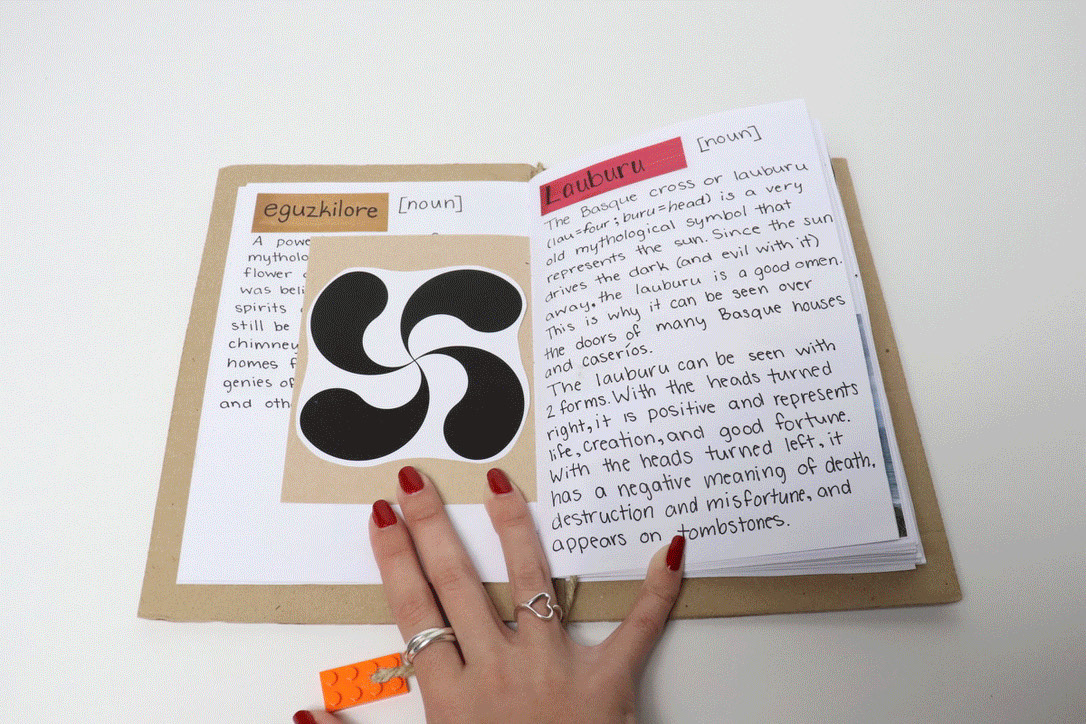 eguzkilore [noun]
A powe
mytholo
flower
was beli
spirits
still be
chimney
homes f
genies of
and oth
Lauburu [noun]
The Basque cross or lauburu
(lau=four; buru=head) is a very
old mythological symbol that
represents the sun. Since the sun
drives the dark (and evil with it)
away, the lauburu is a good omen.
This is why it can be seen over
the doors of many Basque houses
and caseríos.
The lauburu can be seen with
2 forms. With the heads turned
right, it is positive and represents
life, creation, and good fortune.
With the heads turned left, it
has a negative meaning of death,
destruction and misfortune, and
appears on tombstones.